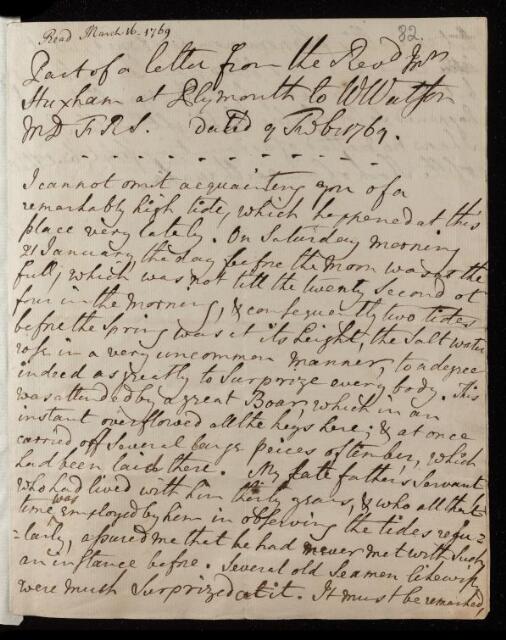 Read March 16. 1769
82.
Part of a letter from the Revd Mr
Huxham at Plymouth to W Watson
MD FRS. Dated 9 Feb 1769.
I cannot omit acquainting you of a
remarkably high tide, which happened at this
place very lately. On Saturday morning
21 January the day before the Moon was at the
full, which was not till the twenty second at
four in the morning, & consequently two tides
before the Spring was at its height, the Salt water
rose in a very uncommon manner, to a degree
indeed as greatly to Surprize every body. This
was attended by a great Boar, which in an
instant overflowed all the keys here; & at once
carried off Several large peices of timber, which
had been laid there. My late father's Servant
who had lived with him thirty years, & who all that
time was employed by him in observing the tides regu=
=larly, assured me that he had never met with Such
an instance before. Several old Seamen likewise
were much Surprized at it. It must be remarked,